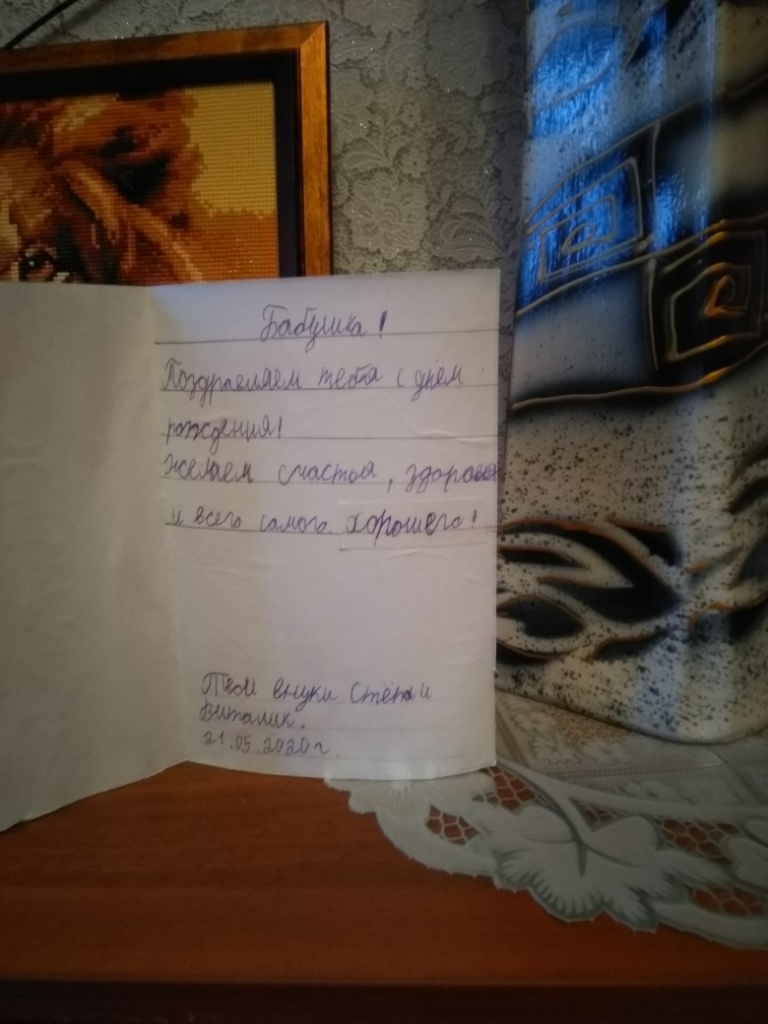 Бабушка!
Поздравляем тебя с днём
рождения!
Желаем счастья, здоровья
и всего самого хорошего!
Твои внуки Стёпа и
Виталик.
21.05.2020 г.